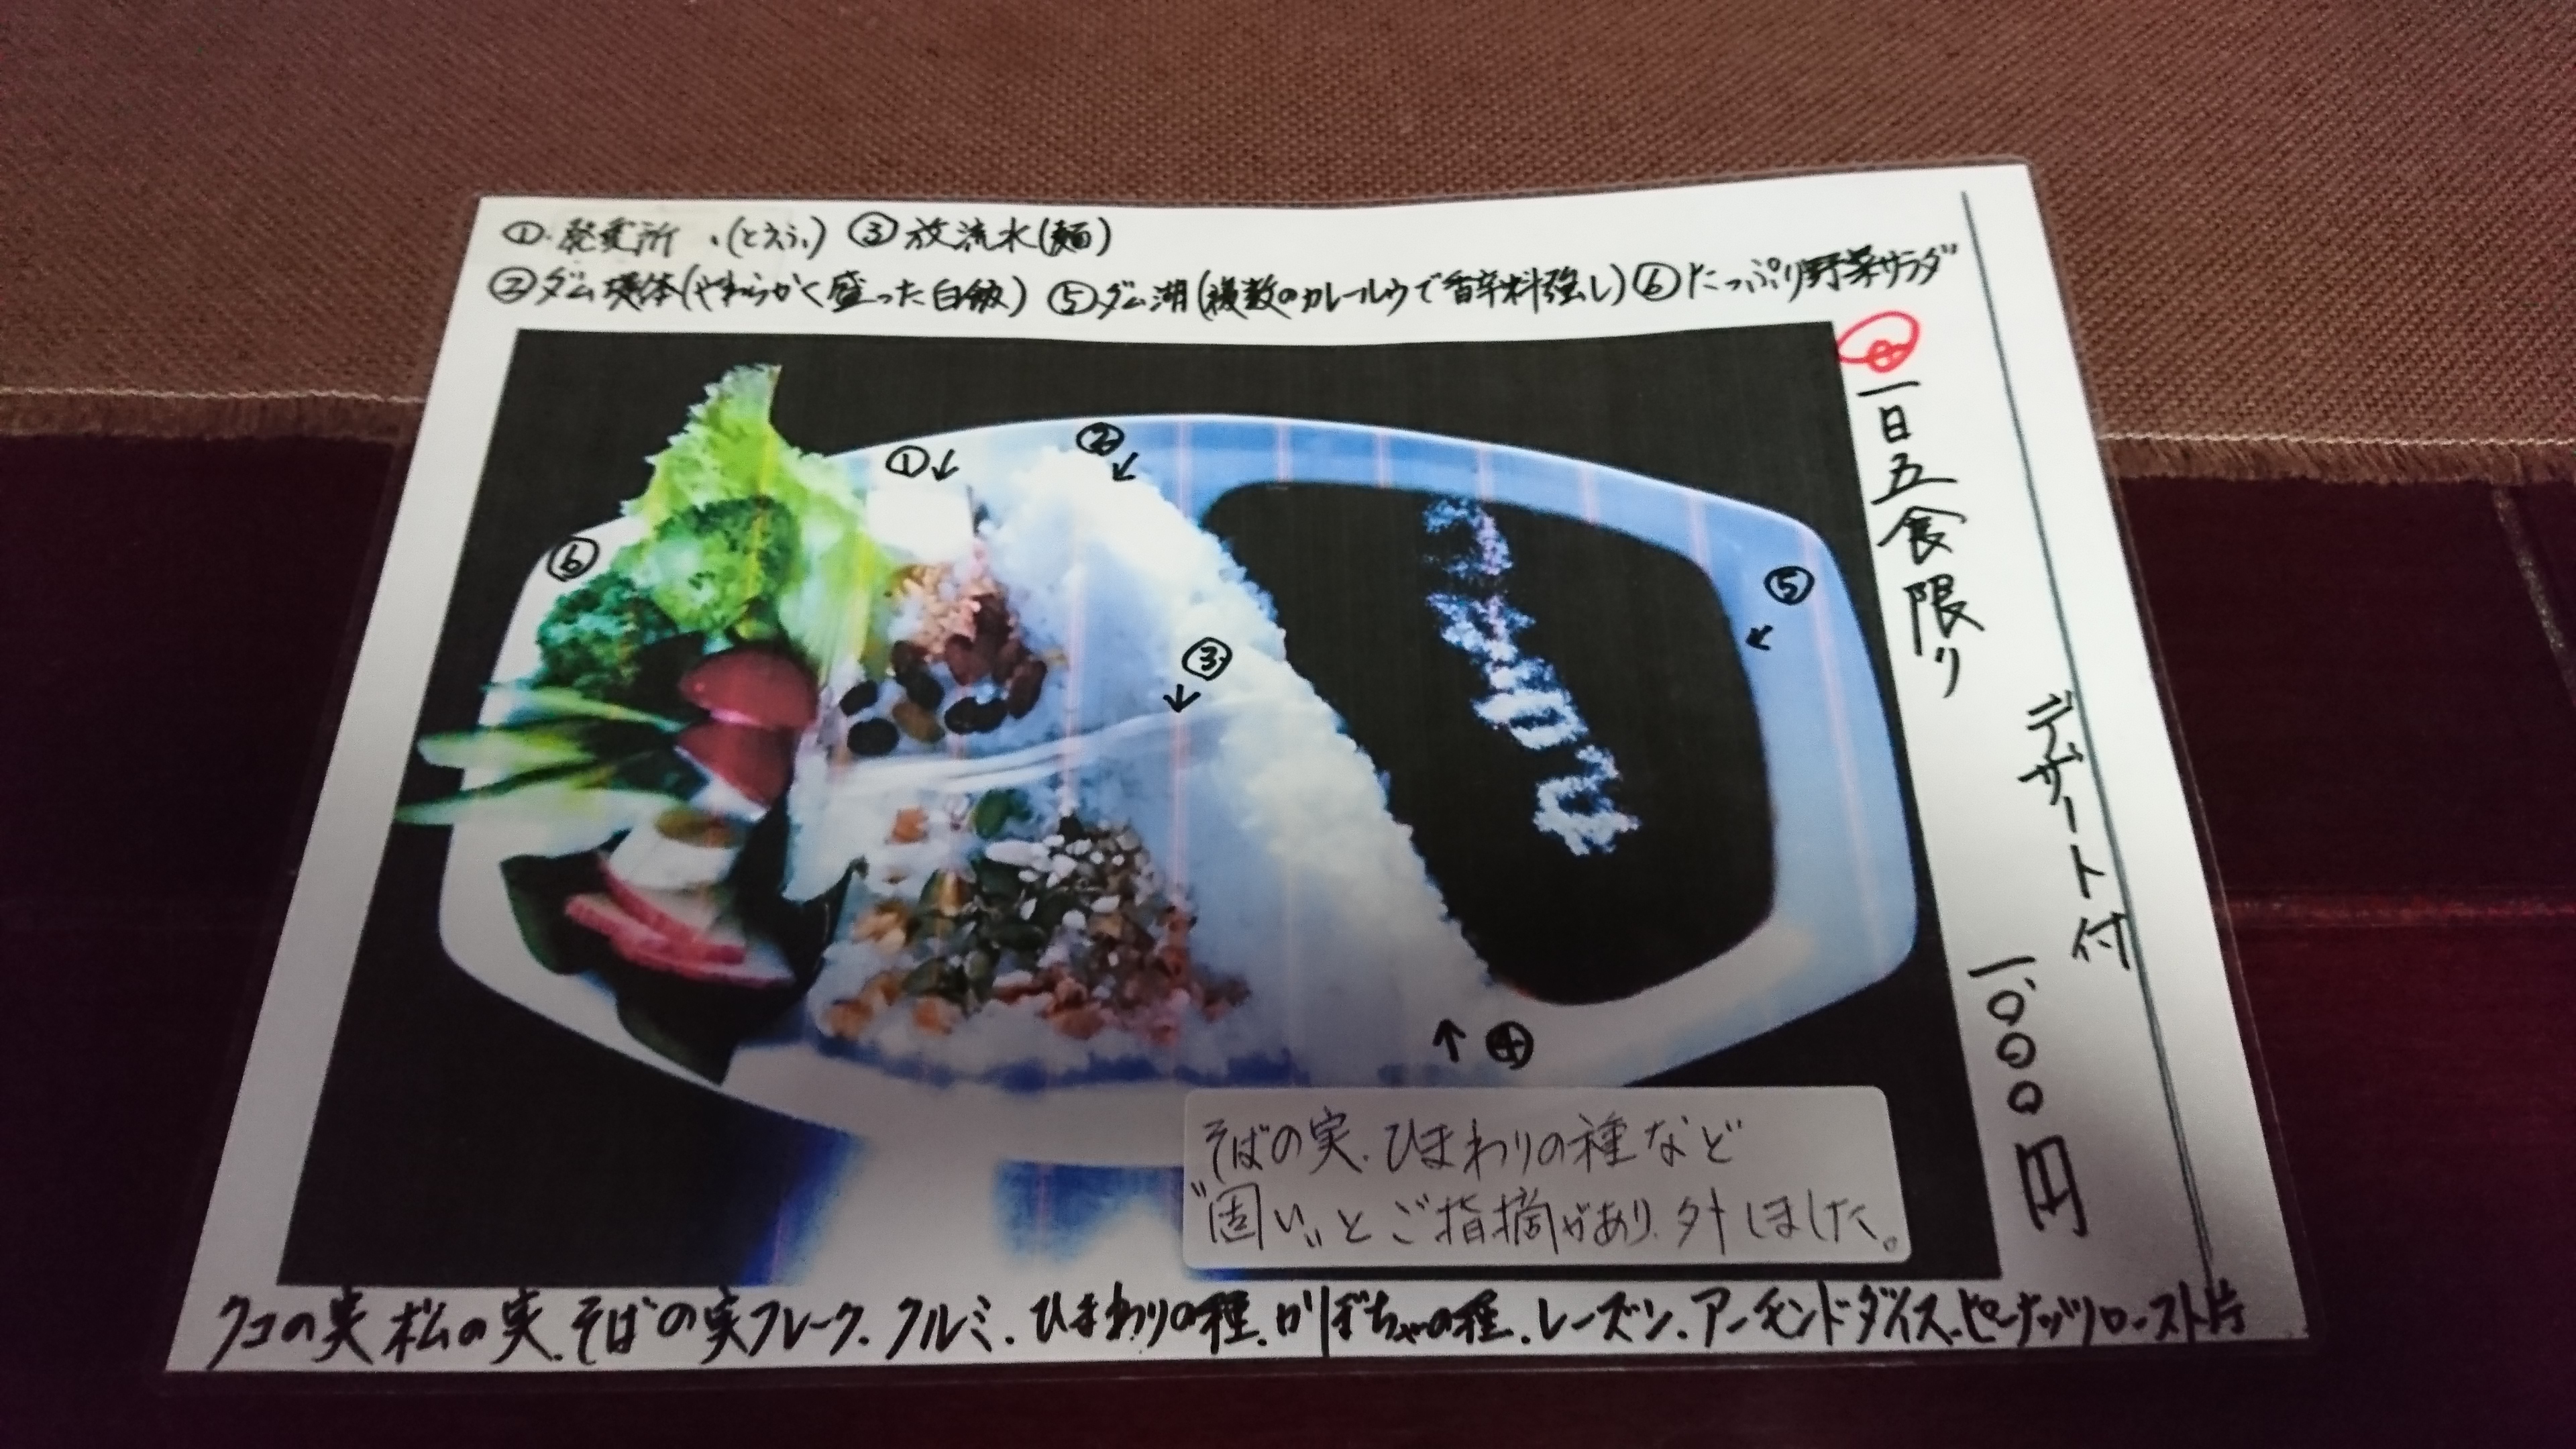 ① 発電所 (とうふ) ③ 放流水(麺)
② ダム堤体(やわらかく盛った白飯) ⑤ ダム湖(複数のカレールウで香辛料強し) ⑥ たっぷり野菜サラダ
一日五食限り
デザート付
一、〇〇〇円
①
②
③
④
⑤
⑥
そばの実.ひまわりの種など
"固い"とご指摘があり.外しました。
クコの実 松の実.そばの実フレーク.クルミ.ひまわりの種.かぼちゃの種.レーズン.アーモンドダイス.ピーナッツロースト片